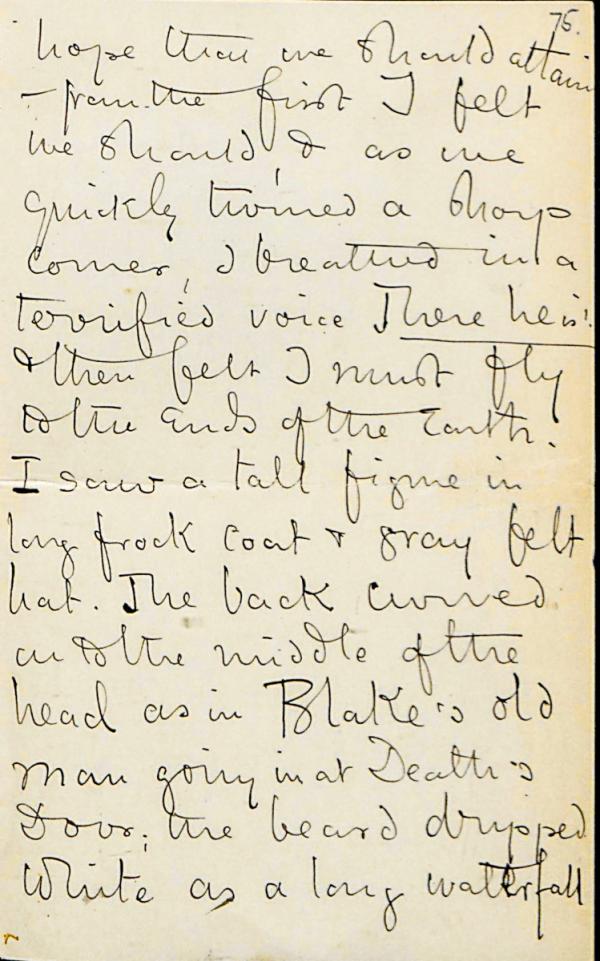 75.
hope that we should attain
– from the first I felt
we should, & as we
quickly turned a sharp
corner, I breathed in a
terrified voice There he is!
& then felt I must fly
to the Ends of the Earth.
I saw a tall figure in
long frock coat & gray felt
hat. The back curved
on to the middle of the
head as in Blake's old
man going in at Death's
Door; the beard dripped
white as a long waterfall